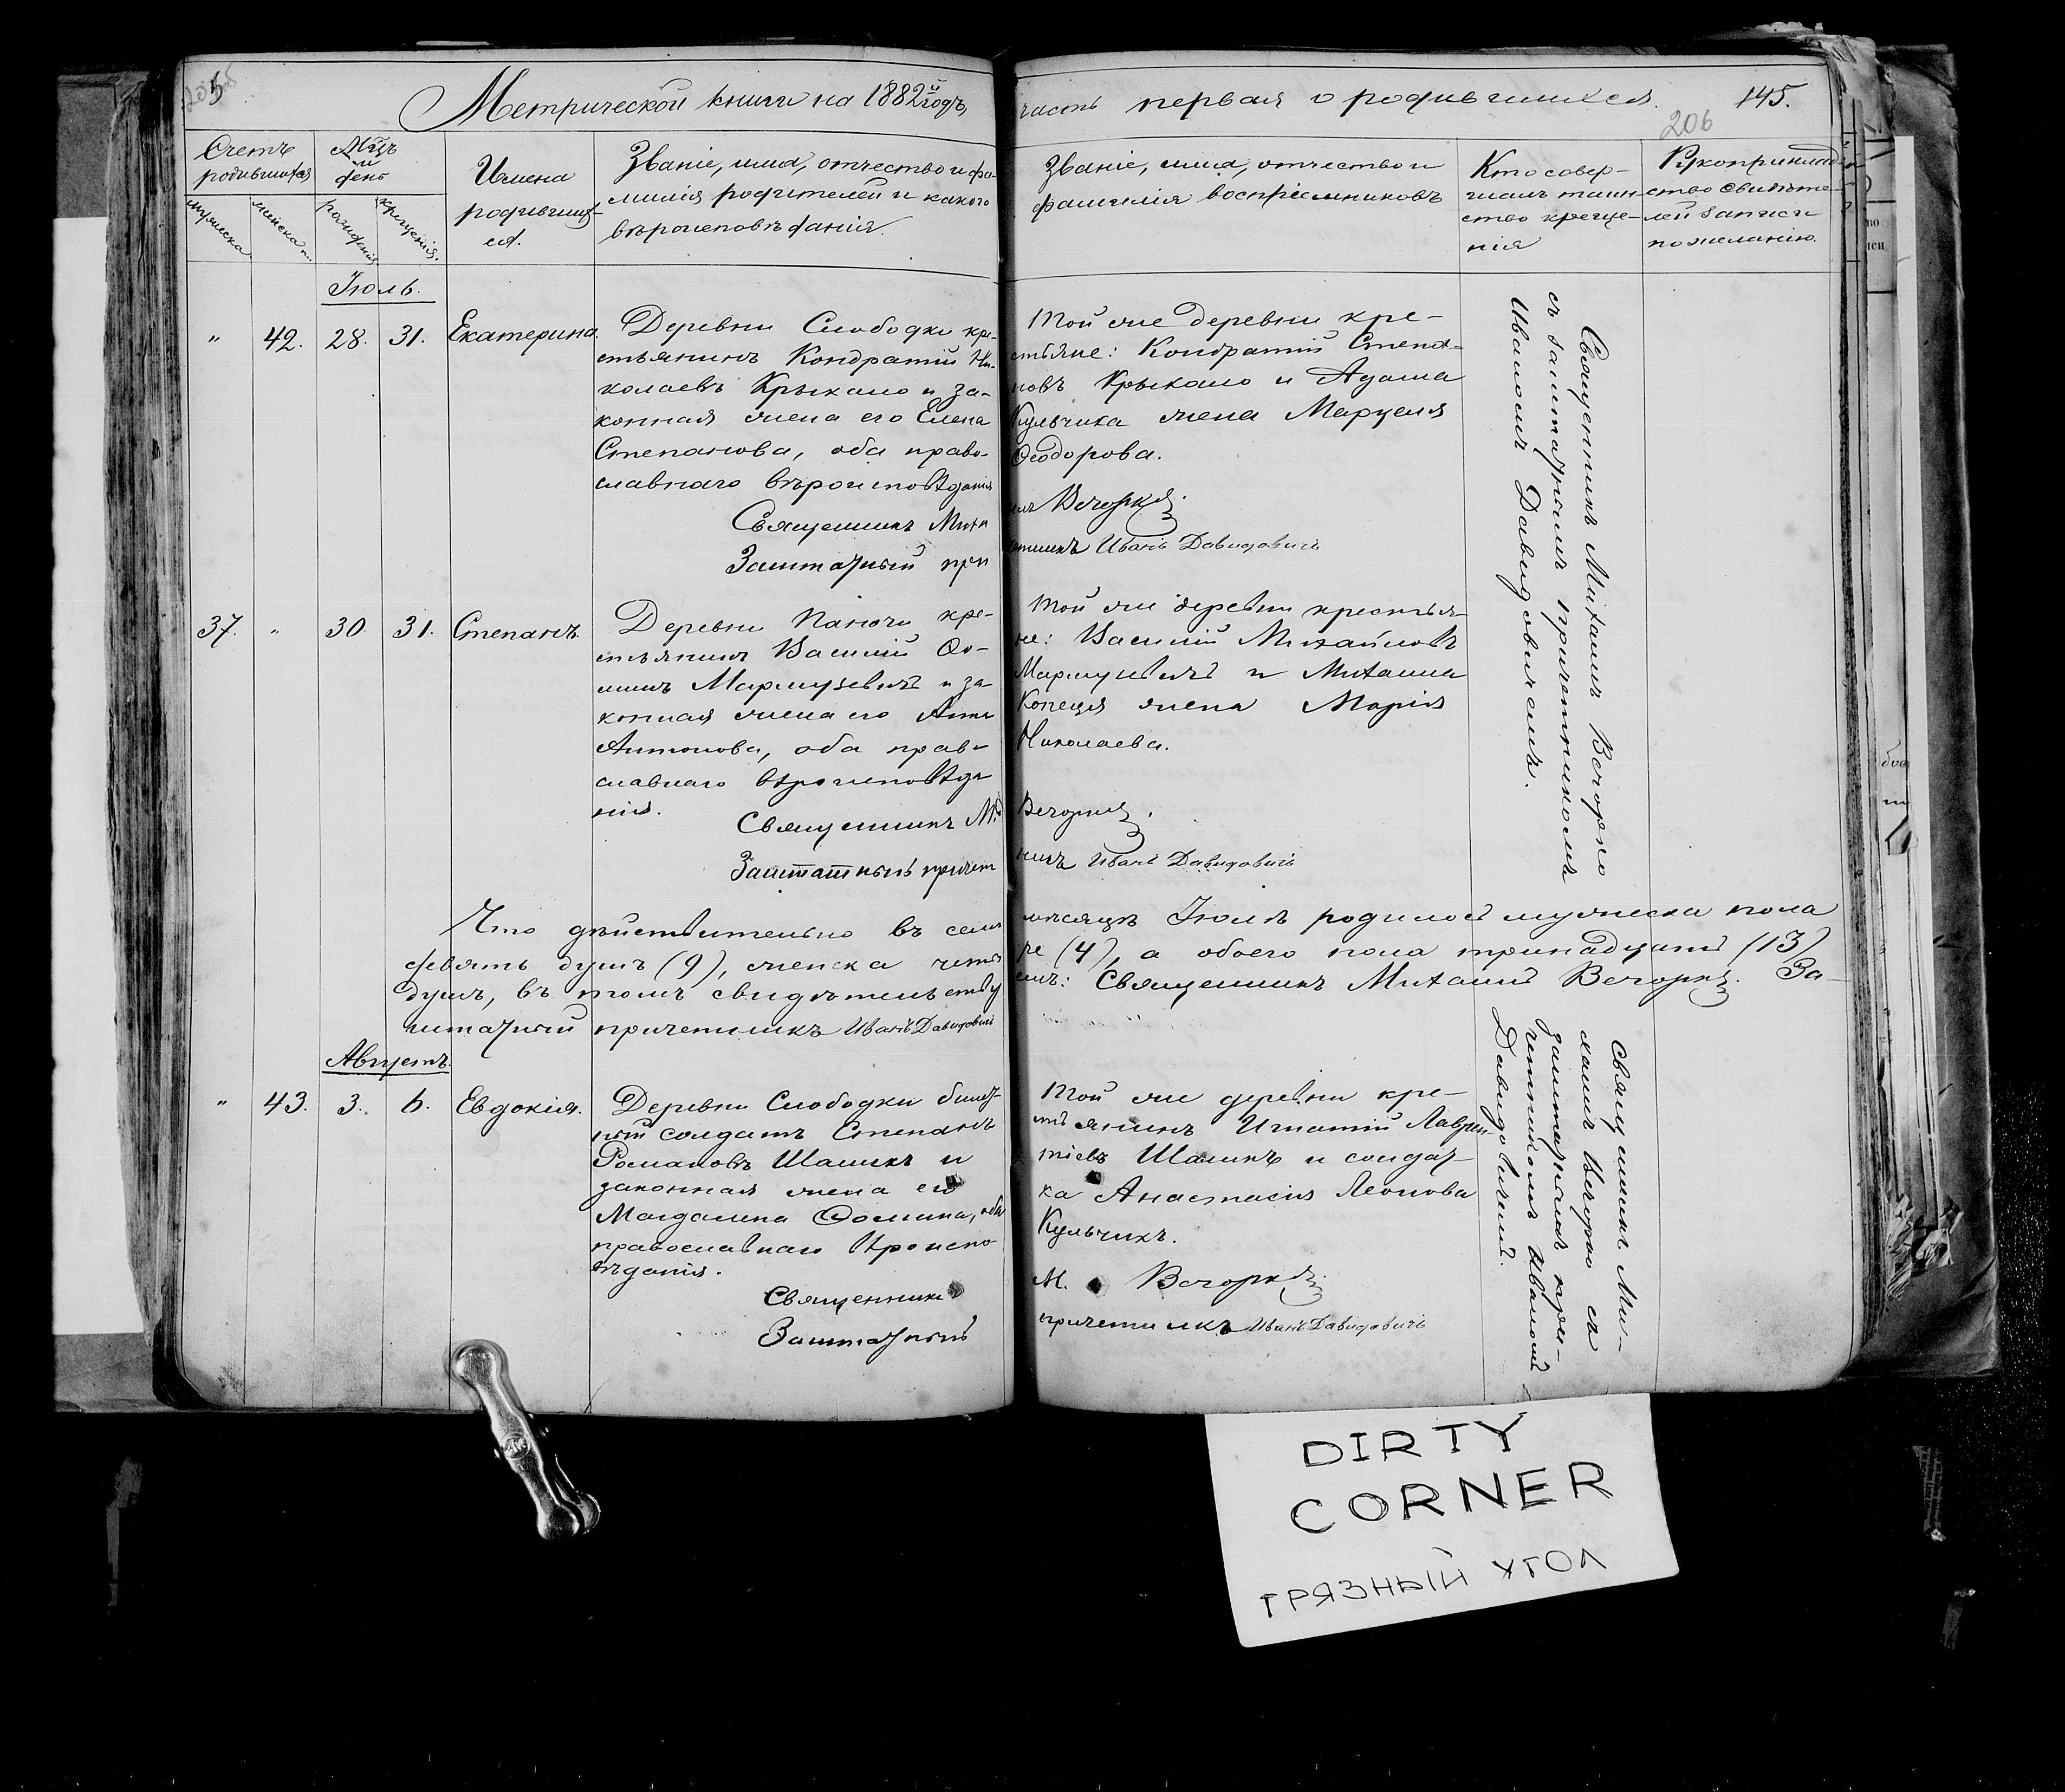 Метрической книги на 1882й годъ,
часть первая о родившихся.
145.
206
Счетъ родившихся
Мцъ и день
Имена родившихся.
Званіе, имя, отчество и фамилія родителей и какого вѣроисповѣданія.
Званіе, имя, отчество и фамилія воспріемниковъ
Кто совершилъ таинство крещенія
Рукоприкладство свидѣтелей записи по желанію.
мужеска
женска
рожденія
крещенія.
Іюль.
" 42. 28. 31. Екатерина.
Деревни Слободки кре-
стьянинъ Кондратій Ни-
колаевъ Крыкало и за-
конная жена его Елена
Степанова, оба право-
славнаго вѣроисповѣданія
Священникъ Миха
Заштатный при
Той же деревни кре-
стьяне: Кондратій Степа-
новъ Крыкало и Адама
Кульчика жена Марцеля
Ѳеодорова.
илъ Вечорко
четникъ Иванъ Давидовичъ
Священникъ Михаилъ Вечорко
съ заштатнымъ причетникомъ
Иваномъ Давидовичемъ.
37. " 30. 31. Степанъ.
Деревни кре-
стьянинъ Василій Ѳо-
минъ Мармузевичъ и за-
конная жена его Анна
Антонова, оба право-
славнаго вѣроисповѣда
нія.
Священникъ М.
Заштатный причет
Той же деревни крестья-
не: Василій Михайловъ
Мармузевичъ и Михаила
жена Марія
Николаева.
Вечорко.
никъ Иванъ Давидовичъ
Что дѣйствительно въ семъ мѣсяцѣ Іюлѣ родилось мужеска пола
девять душъ (9), женска четы ре (4), а обоего пола тринадцать (13)
душъ, въ томъ свидѣтельству емъ: Священникъ Михаилъ Вечорко. За-
штатный причетникъ Иванъ Давидовичъ
Августъ.
" 43. 3. 6. Евдокія.
Деревни Слободки билет-
ный солдатъ Степанъ
Романовъ Шашикъ и
законная жена его
Магдалина Ѳомина, оба
православнаго вѣроиспо-
вѣданія.
Священникъ
Заштатный
Той же деревни кре-
стьянинъ Игнатій Лаврен-
тіевъ Шашикъ и солдат-
ка Анастасія Леонова
Кульчикъ.
М. Вечорко
причетникъ Иванъ Давидовичъ
Священникъ Ми-
хаилъ Вечорко съ
заштатнымъ при-
четникомъ Иваномъ
Давидовичемъ.
DIRTY
CORNER
ГРЯЗНЫЙ УГОЛ